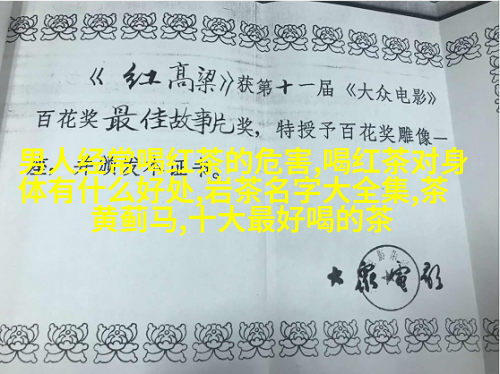 《红高粱》获第十一届《大众电影》
百花奖最佳故事片奖，特授予百花奖雕像一
座，并颁发本证书。
男人经常喝红茶的危害,喝红茶对身
体有什么好处,岩茶名字大全集,茶
黄蓟马,十大最好喝的茶
大众电影